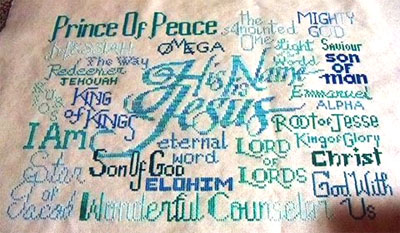 Prince Of Peace
the Anointed One
MIGHTY GOD
MESSIAH
OMEGA
Light of the World
Saviour
The Way
son of man
Redeemer
JEHOVAH
His Name is Jesus
Emmanuel
ALPHA
KING of KINGS
Root of Jesse
I Am
eternal word
LORD of LORDS
King of Glory
Christ
Star of Jacob
Son Of God
ELOHIM
God With Us
Wonderful Counselor